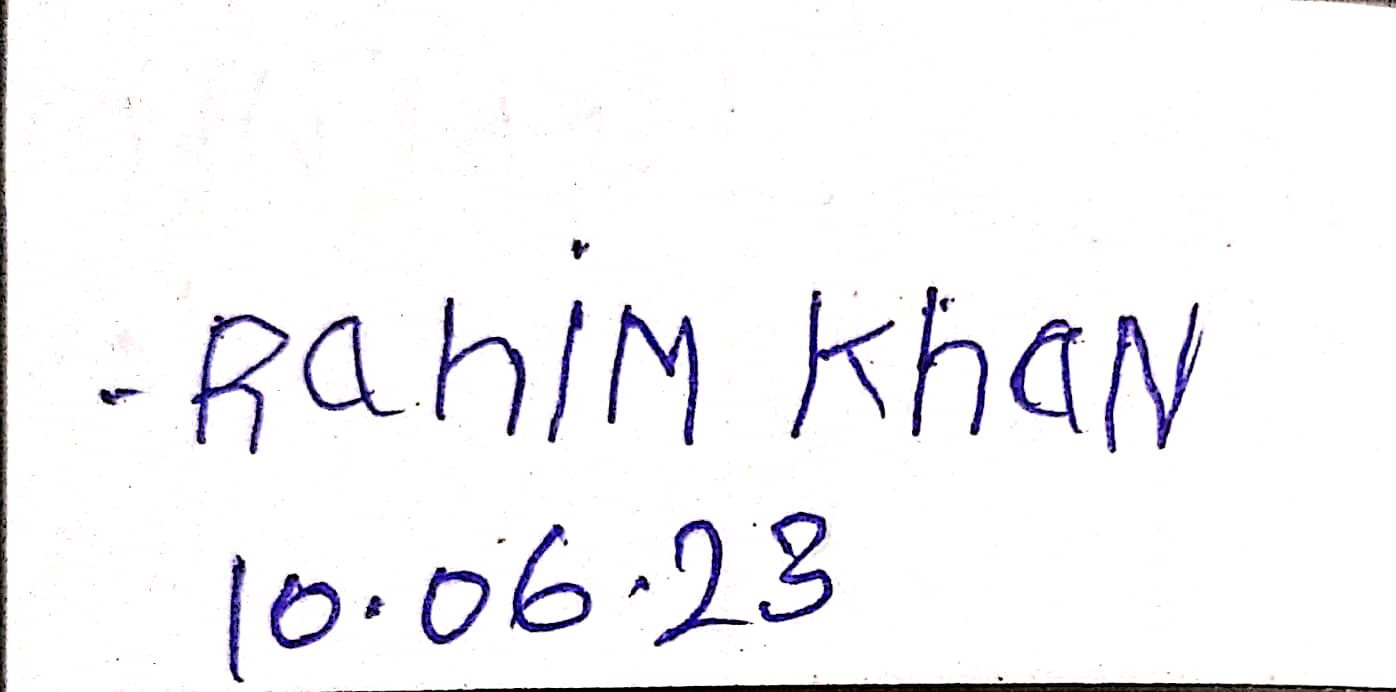 - RahiM KhaN
10.06.23